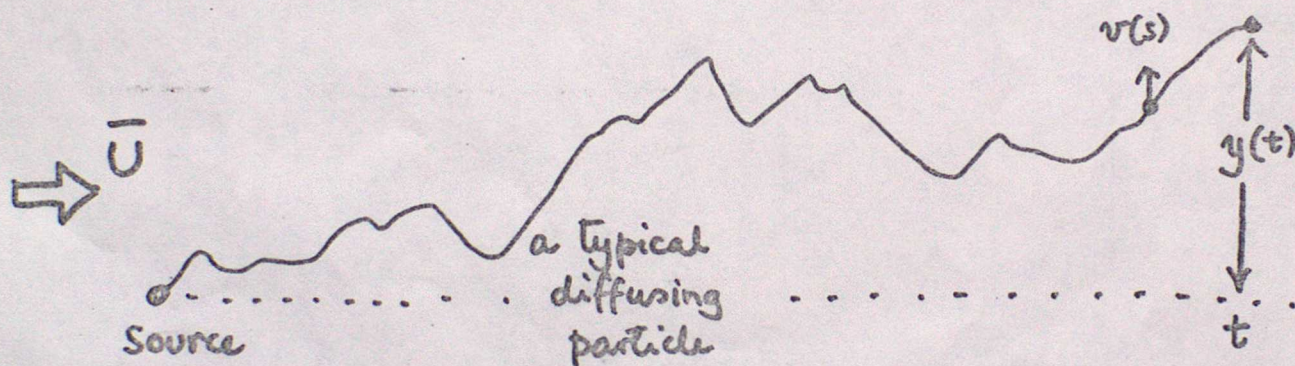 v(s)
Ū
y(t)
a typical
diffusing
particle
Source
t